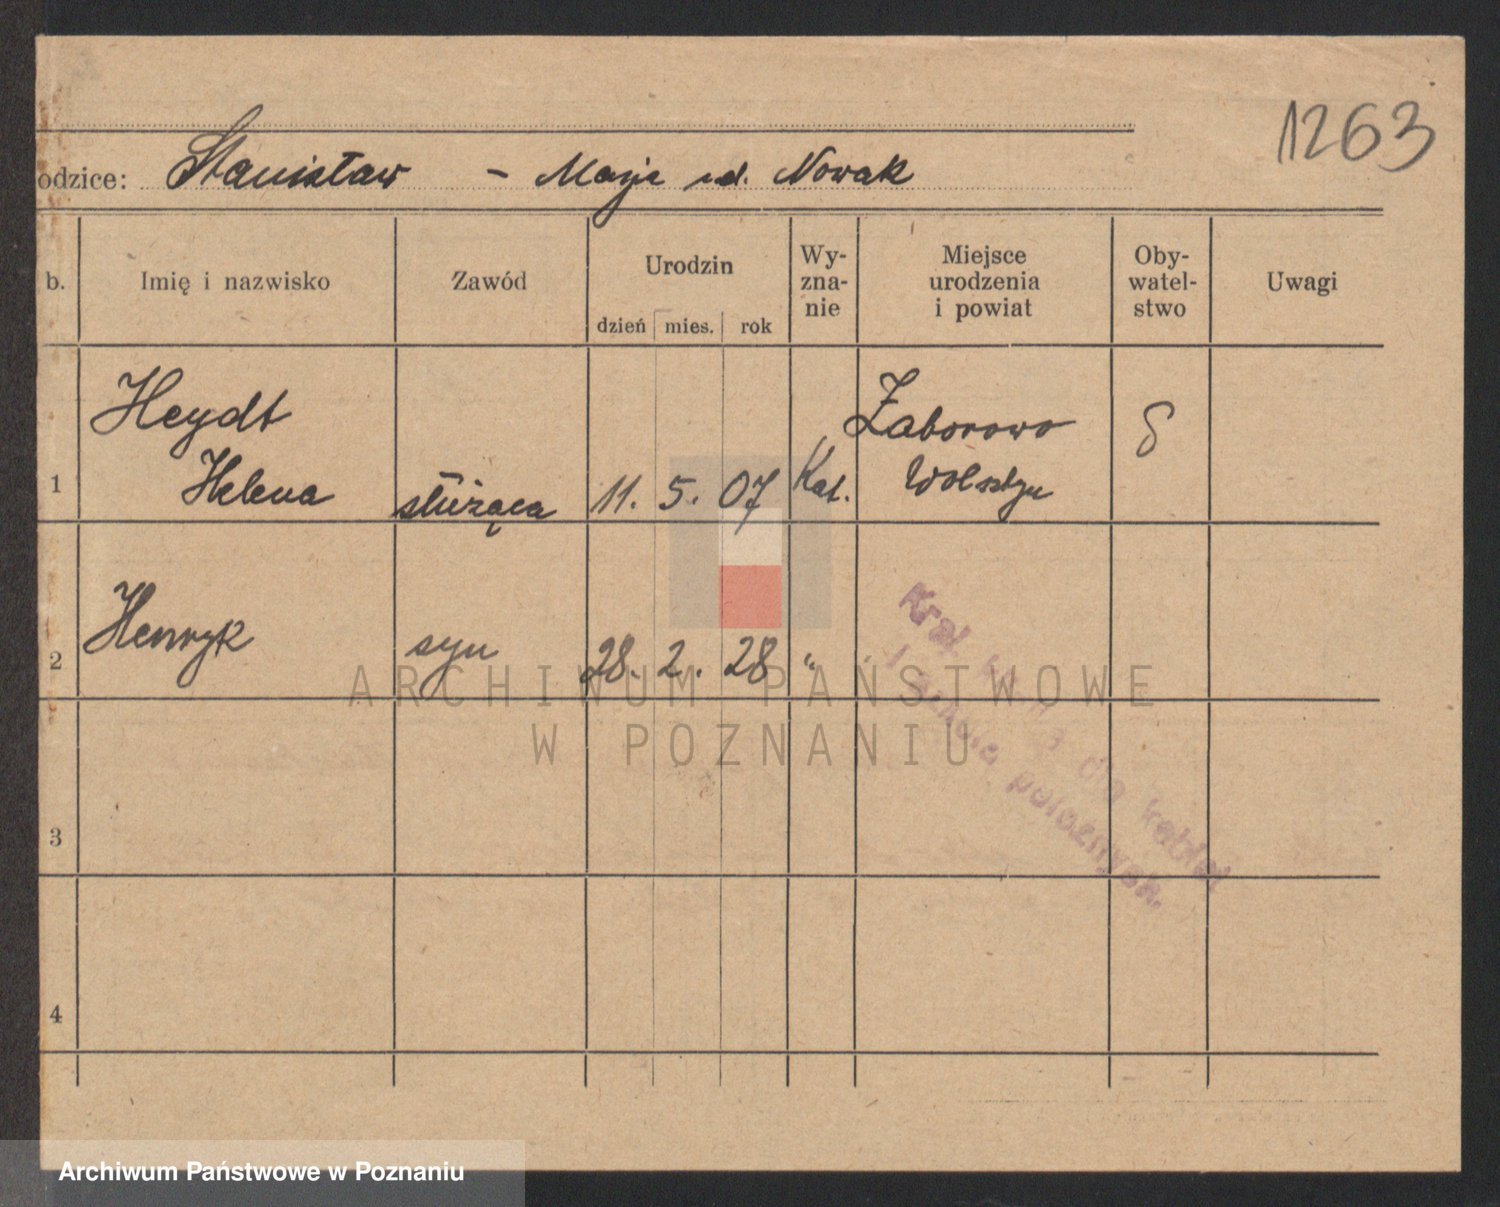 1263
odzice: Stanisław - Marja ur. Nowak
b. Imię i nazwisko Zawód Urodzin Wy- Miejsce Oby- Uwagi
zna- urodzenia watel-
nie i powiat stwo
dzień mies. rok
Heydt Zaborowo
1 Helena służąca 11. 5. 07 Kat. Wolsztyn
2 Henryk syn 28. 2. 28 "
3
4
dla kobiet
położnych.
ARCHIWUM PAŃSTWOWE
W POZNANIU
Archiwum Państwowe w Poznaniu